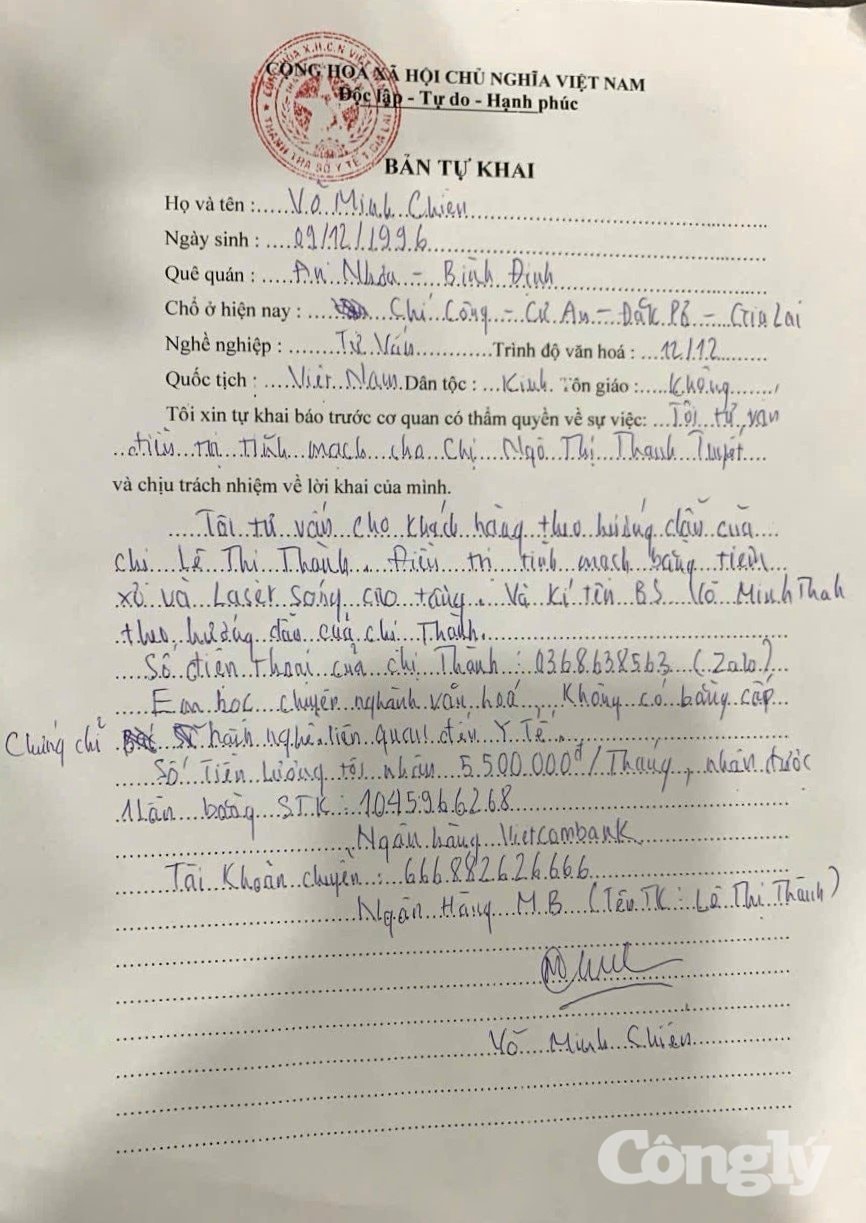 CỘNG HOÀ XÃ HỘI CHỦ NGHĨA VIỆT NAM
Độc lập - Tự do - Hạnh phúc
THANH TRA SỞ Y TẾ T. GIA LAI
BẢN TỰ KHAI
Họ và tên : Võ Minh Chiến
Ngày sinh : 09/12/1996
Quê quán : An Nhơn - Bình Định
Chổ ở hiện nay : Chí Công - Cư An - Đăk Pơ - Gia Lai
Nghề nghiệp : Tư Vấn Trình độ văn hoá : 12/12
Quốc tịch : Việt Nam Dân tộc : Kinh Tôn giáo : Không
Tôi xin tự khai báo trước cơ quan có thẩm quyền về sự việc: Tôi tư vấn
điều trị tĩnh mạch cho Chị Ngô Thị Thanh Tuyết
và chịu trách nhiệm về lời khai của mình.
Tôi tư vấn cho khách hàng theo hướng dẫn của
chị Lê Thị Thành. Điều trị tĩnh mạch bằng tiêm
xơ và Laser Sóng cao tầng. Và kí tên BS Võ Minh Thah
theo hướng dẫn của chị Thành.
Số điện thoại của chị Thành : 0368638563 (Zalo)
Em học chuyên nghành văn hoá, Không có bằng cấp
Chứng chỉ hành nghề liên quan đến Y Tế.
Số Tiền Lương tôi nhận 5.500.000đ/Tháng, nhận được
1 lần bằng STK : 1045966268
Ngân hàng Vietcombank
Tài Khoản chuyển : 666882626666
Ngân Hàng M.B (Tên TK : Lê Thị Thành)
Võ Minh Chiến
Cônglý